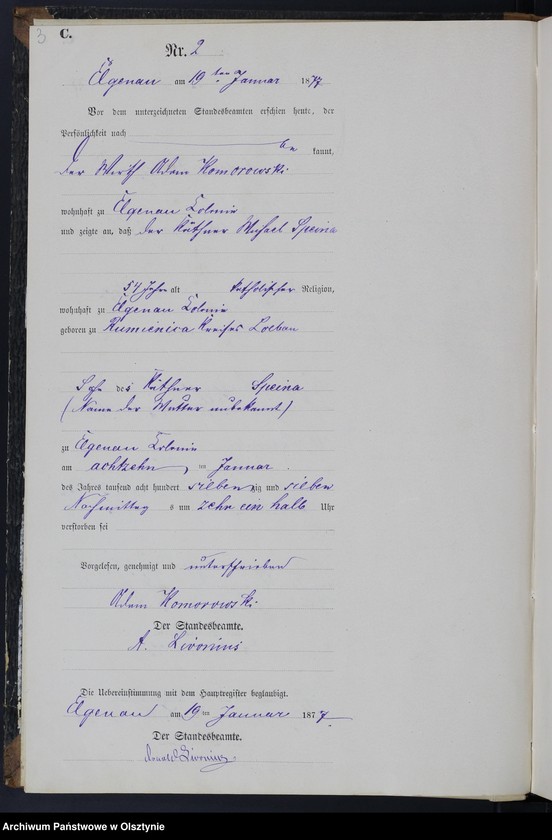 3
C.
Nr. 2
Elgenau am 19ten Januar 1877
Vor dem unterzeichneten Standesbeamten erschien heute, der
Persönlichkeit nach
be kannt,
der Wirth Adam Komorowski
wohnhaft zu Elgenau Colonie
und zeigte an, daß der Käthner Michael Speina
54 Jahre alt katholischer Religion,
wohnhaft zu Elgenau Colonie
geboren zu Rumienica Kreises Loebau
Sohn des Käthner Speina
(Name der Mutter unbekannt)
zu Elgenau Colonie
am achtzehn ten Januar
des Jahres tausend acht hundert sieben zig und sieben
Nachmittag s um zehn ein halb Uhr
verstorben sei
Vorgelesen, genehmigt und unterschrieben
Adam Komorowski
Der Standesbeamte.
A. Livonius
Die Uebereinstimmung mit dem Hauptregister beglaubigt.
Elgenau am 19ten Januar 1877
Der Standesbeamte.
Livonius
Archiwum Państwowe w Olsztynie